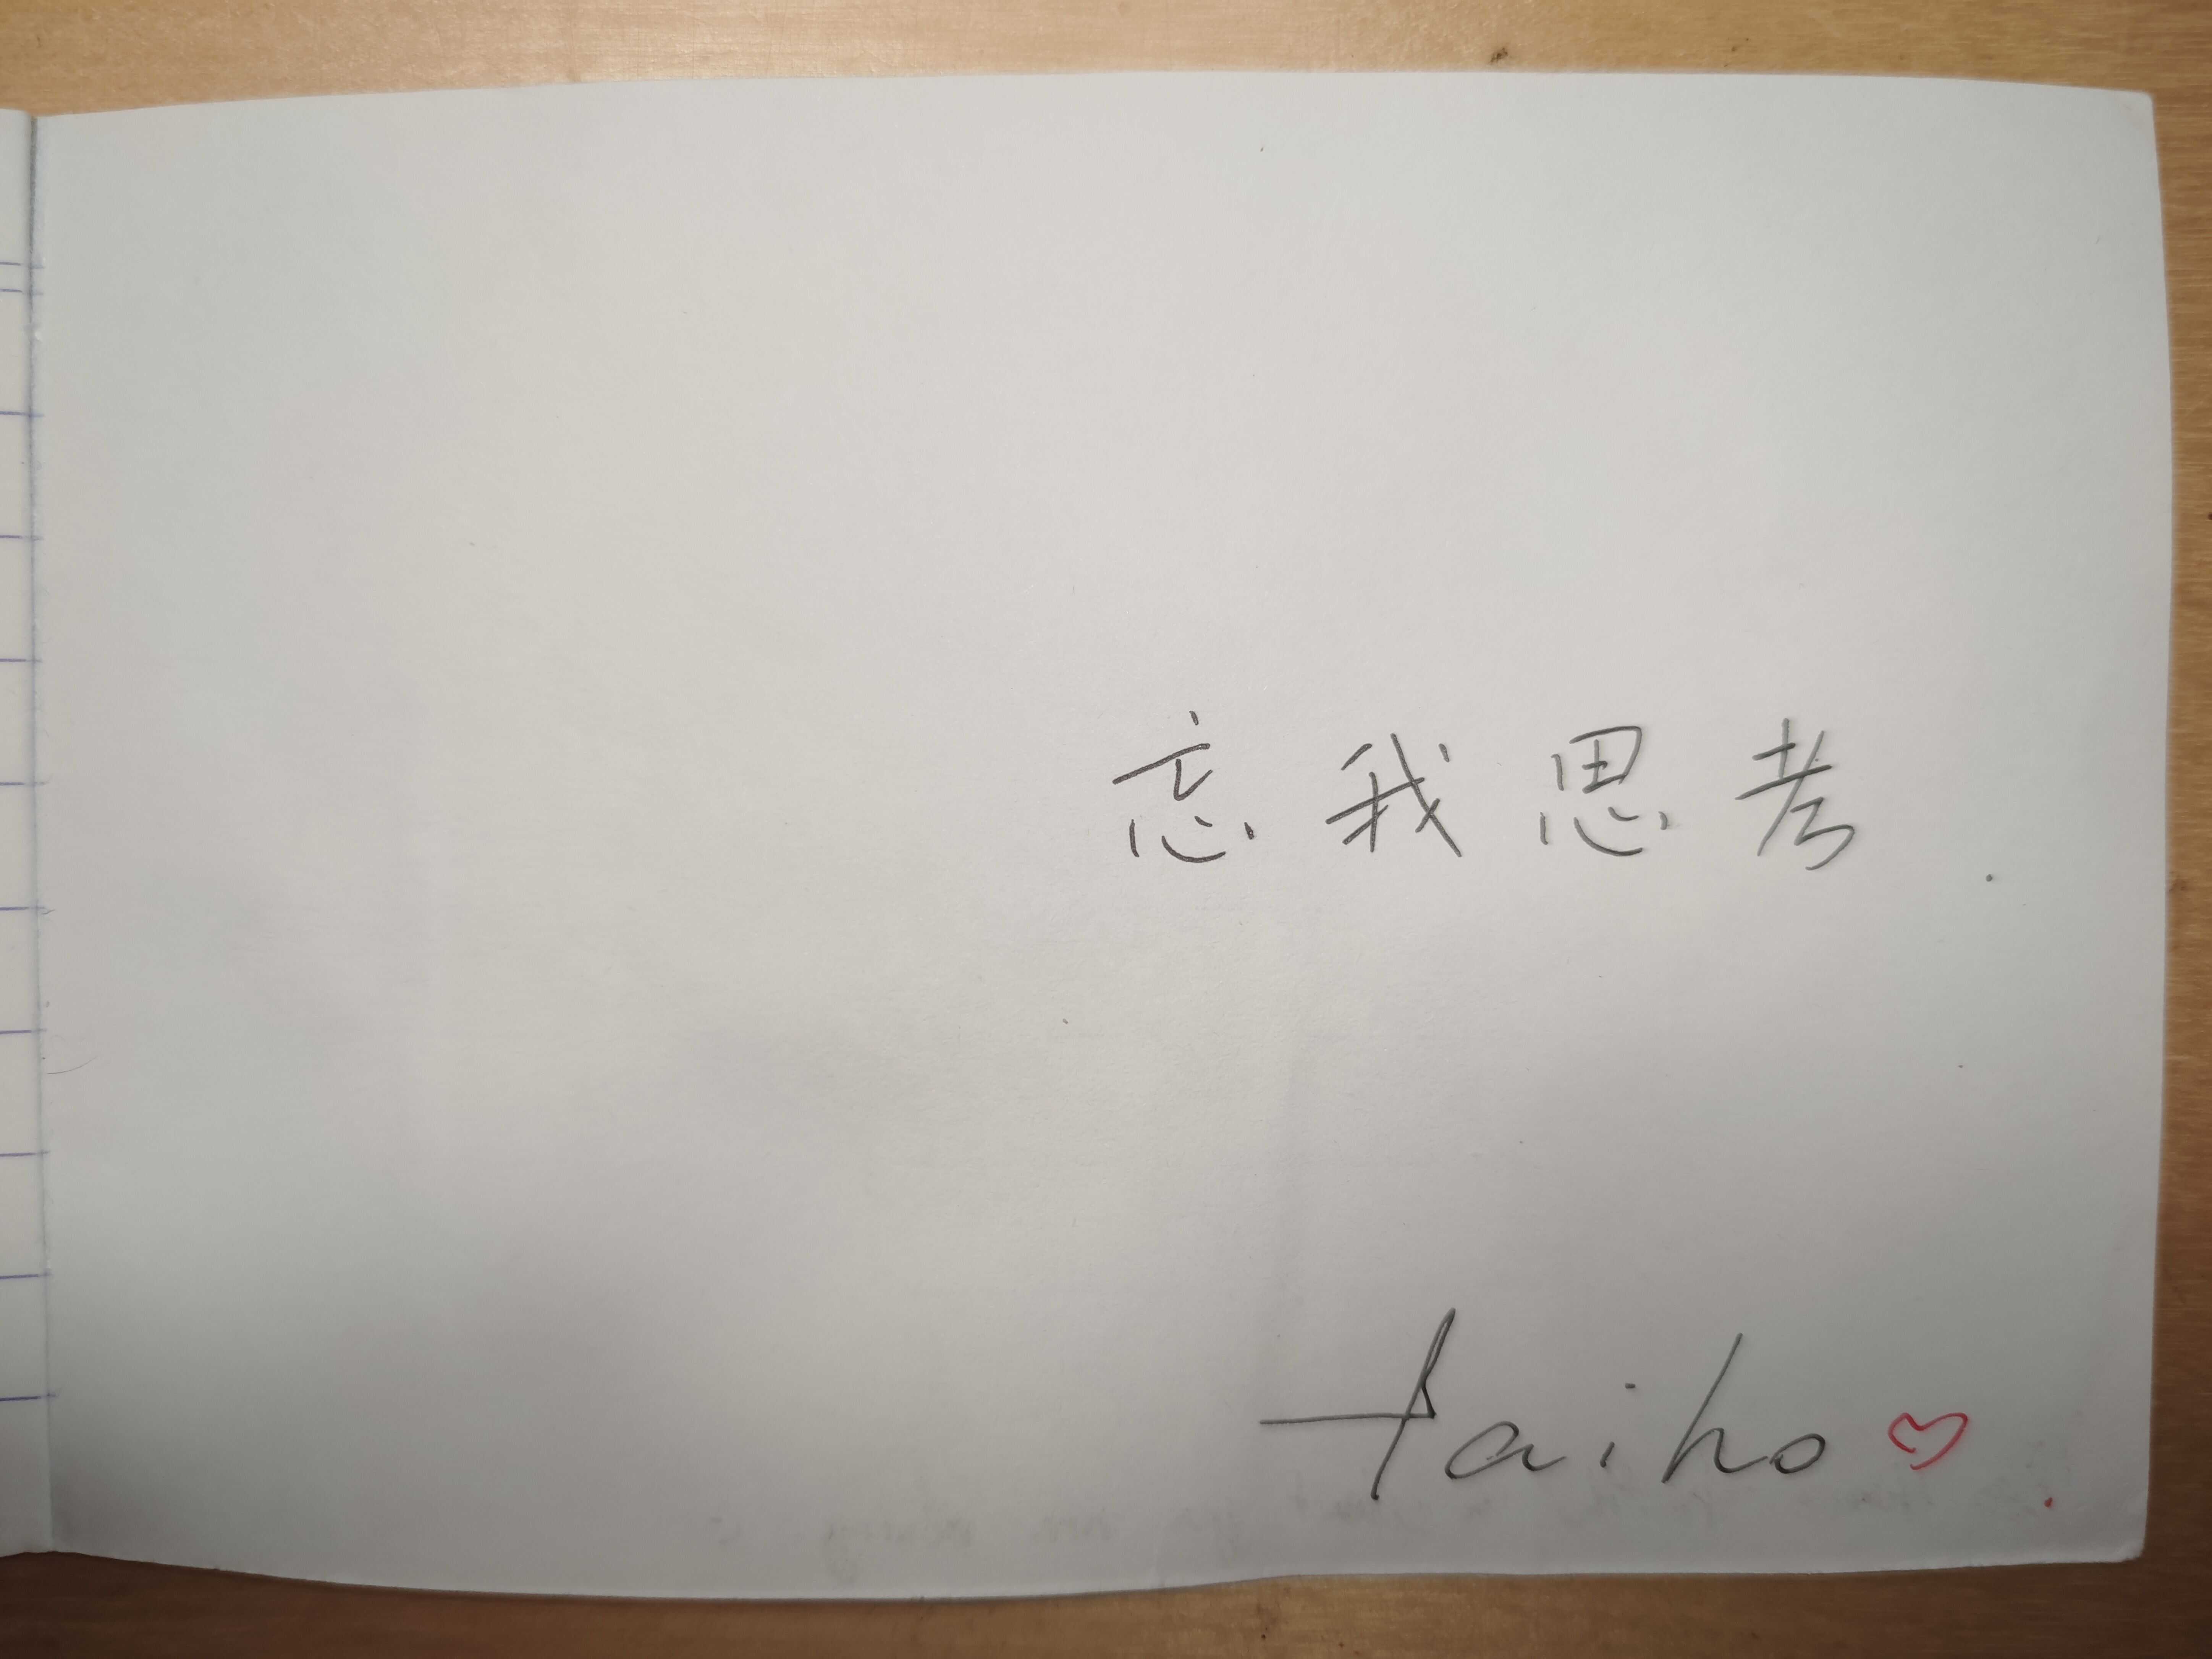 忘我思考.
taiho♡.